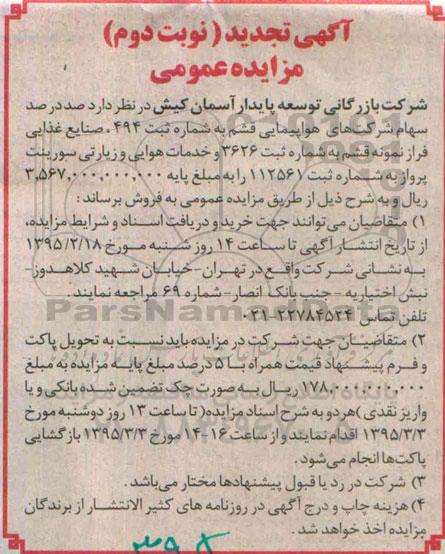 آگهی تجدید (نوبت دوم)
مزایده عمومی
شرکت بازرگانی توسعه پایدار آسمان کیش در نظر دارد صد در صد
سهام شرکت‌های هواپیمایی قشم به شماره ثبت ۴۹۴، صنایع غذایی
فراز نمونه قشم به شماره ثبت ۳۶۲۶ و خدمات هوایی و زیارتی سورینت
پرواز به شماره ثبت ۱۱۲۵۶۱ را به مبلغ پایه ۳,۵۶۷,۰۰۰,۰۰۰,۰۰۰
ریال و به شرح ذیل از طریق مزایده عمومی به فروش برساند:
۱) متقاضیان می‌توانند جهت خرید و دریافت اسناد و شرایط مزایده،
از تاریخ انتشار آگهی تا ساعت ۱۴ روز شنبه مورخ ۱۳۹۵/۲/۱۸
به نشانی شرکت واقع در تهران-خیابان شهید کلاهدوز-
نبش اختیاریه - جنب بانک انصار-شماره ۶۹ مراجعه نمایند.
تلفن تماس ۲۲۷۸۴۵۲۴-۰۲۱
ParsNamadData
۲) متقاضیان جهت شرکت در مزایده باید نسبت به تحویل پاکت
و فرم پیشنهاد قیمت همراه با ۵ درصد مبلغ پایه مزایده به مبلغ
۱۷۸,۰۰۰,۰۰۰,۰۰۰ ریال به صورت چک تضمین شده بانکی و یا
واریز نقدی )هر دو به شرح اسناد مزایده( تا ساعت ۱۳ روز دوشنبه مورخ
۱۳۹۵/۳/۳ اقدام نمایند و از ساعت ۱۶-۱۴ مورخ ۱۳۹۵/۳/۳ بازگشایی
پاکت‌ها انجام می‌شود.
۳) شرکت در رد یا قبول پیشنهادها مختار می‌باشد.
۴) هزینه چاپ و درج آگهی در روزنامه های کثیر الانتشار از برندگان
مزایده اخذ خواهد شد.